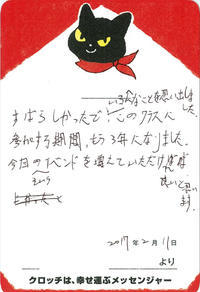 いろんなことを思い出しました。
すばらしかったです、このクラスに
参加する期間、もう3年人なりました。
今日のイベンドを増えていただければ
良いと思います
2017年2月11日
より
クロッチは、幸せ運ぶメッセンジャー